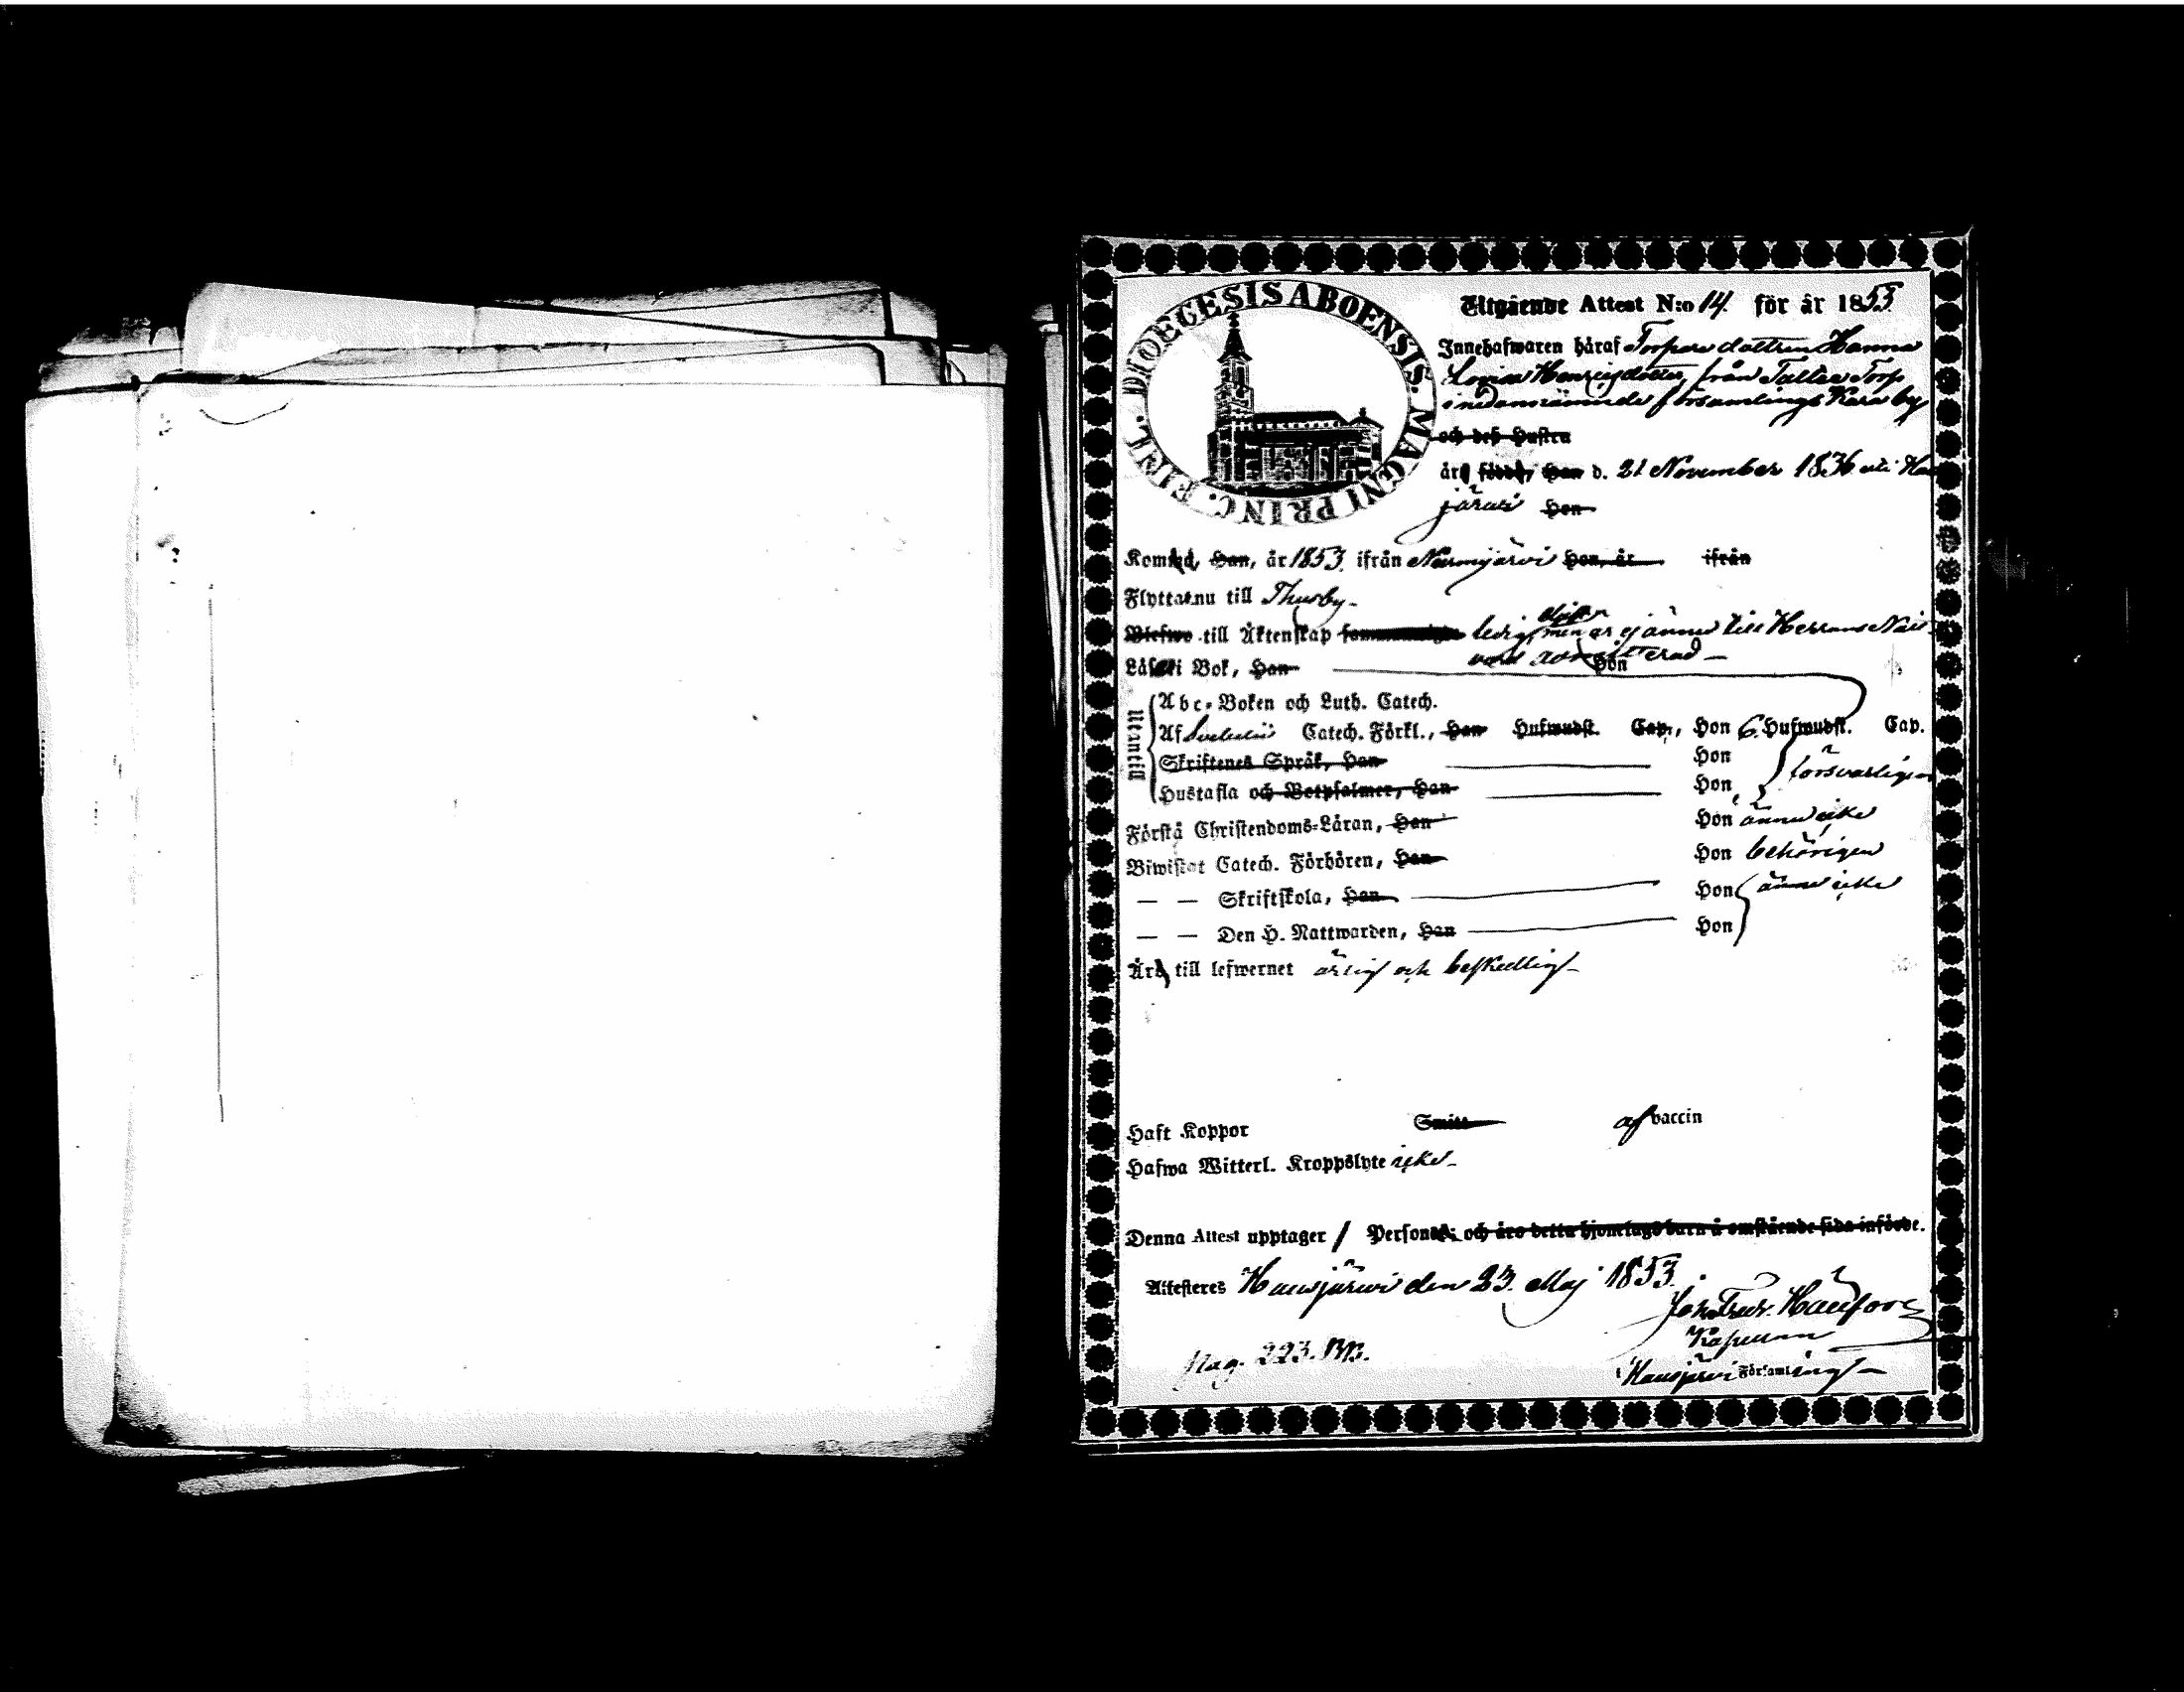 DIOECESIS ABOENSIS. MAGNI PRINC. FINL.
Utgående Attest N:o 14. för år 1853.
Innehafwaren häraf Torpare dottren Hanna
Lovisa Henricsdotter, från Talles Torp
i nedannämnde församlings Kara by
och deß Hustru
äro födde, Han d. 21 November 1836 uti Haus
järwi Hon
Komne, Han, år 1853. ifrån Nurmijärvi Hon, år ifrån
Flyttar nu till Thusby.
till Äktenskap ledig, men är ej ännu till Herrans Natt-
vard admitterad
Läser i Bok, Han Hon
Utantill
Abc-Boken och Luth. Catech.
Af Svebelii Catech. Förkl., Han Hufwudst. Cap., Hon 6. Hufwudst. Cap.
Skriftenes Språk, Han Hon
försvarligen
Hustafla och Botpsalmer, Han Hon
Förstå Christendoms-Läran, Han Hon ännu icke
Biwistat Catech. Förhören, Han Hon behörigen
— — Skriftskola, Han Hon ännu icke
— — Den H. Nattwarden, Han Hon
Äro till lefwernet ärlig och beskedlig
Haft Koppor Smitt af vaccin
Hafwa Witterl. Kroppslyte icke
Denna Attest upptager 1 Personer och äro detta hjonelags barn å omstående sida införde.
Attesteres Hausjärwi den 23. Maj 1853.
Joh. Fredr.
Kapellan
Pag. 223.
i Hausjärvi Församling